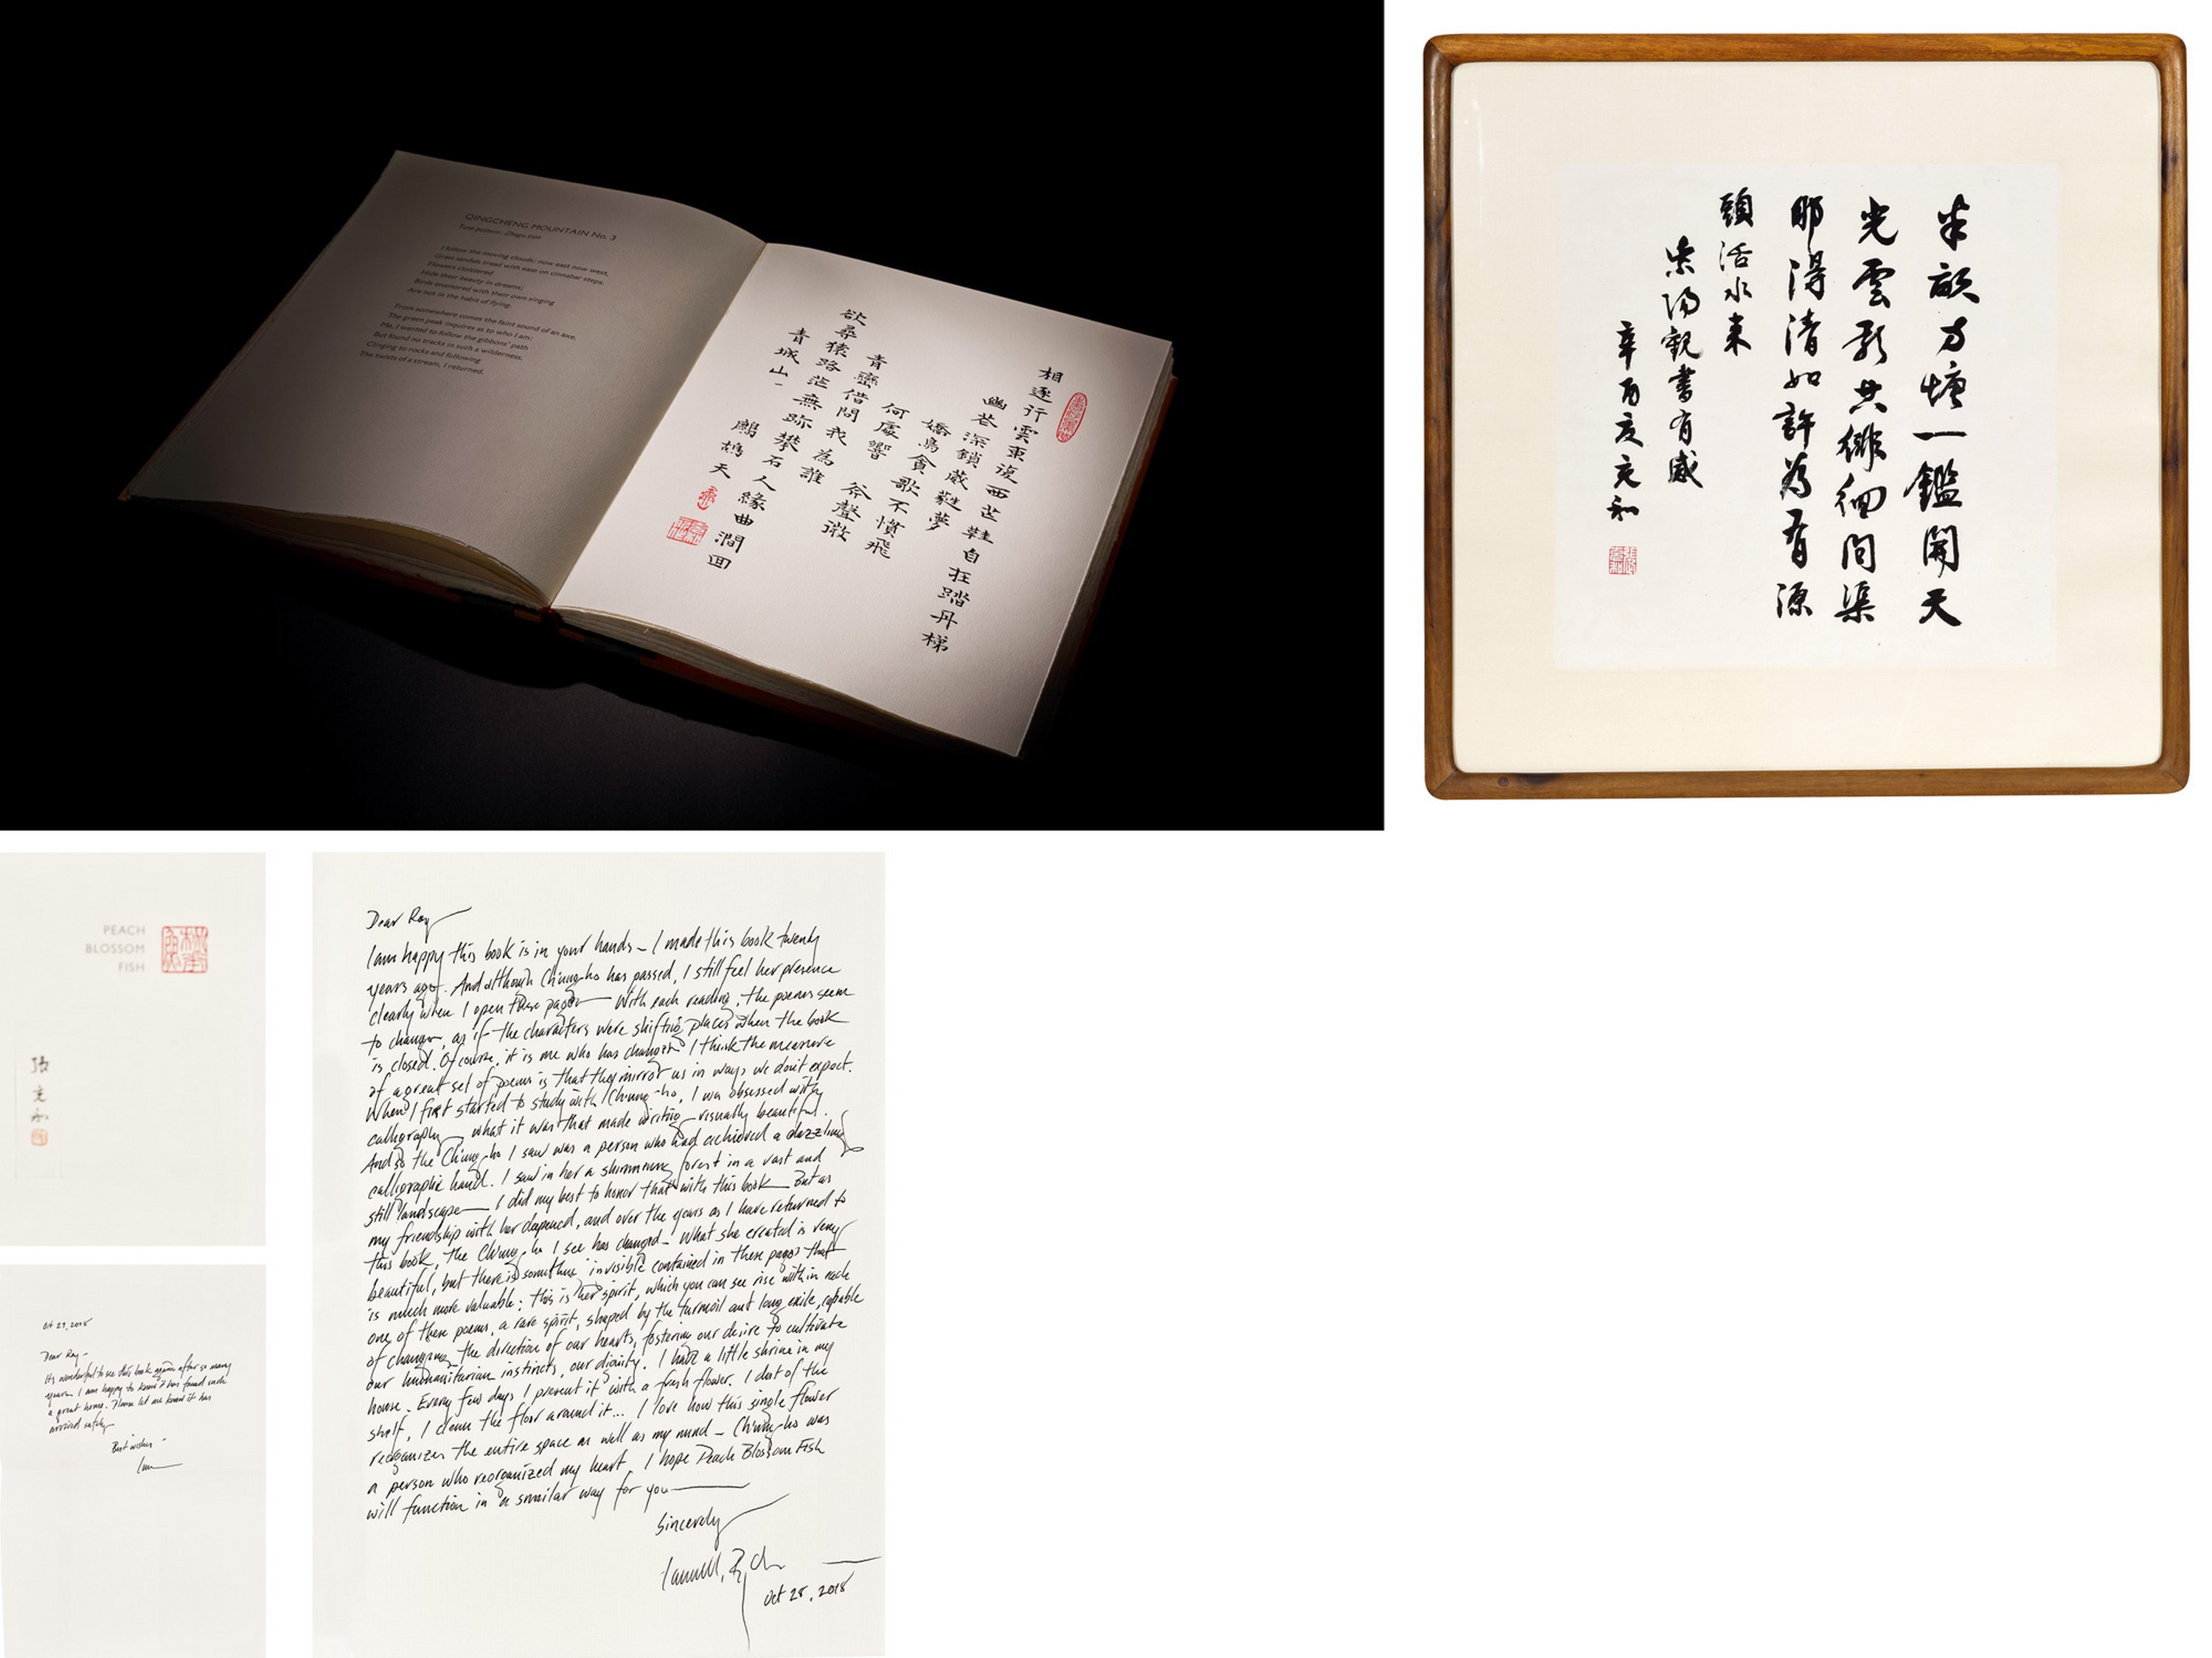 QINGCHENG MOUNTAIN No. 3
Tune pattern: Zhegu tian
I follow the moving clouds: now east now west,
Grass sandals tread with ease on cinnabar steps,
Flowers cloistered
Hide their beauty in dreams;
Birds enamored with their own singing
Are not in the habit of flying.
From somewhere comes the faint sound of an axe,
The green peak inquires as to who I am;
Me, I wanted to follow the gibbons' path
But found no tracks in such a wilderness,
Clinging to rocks and following
The twists of a stream, I returned.
相逐行雲東復西芒鞋自狂踏丹梯
幽花深鎖葳蕤夢
嬌鳥貪歌不慣飛
何處響 斧聲微
青巒借問我為誰
欲尋猿路茫無跡攀石人緣曲澗回
青城山一 鷓鴣天
半畝方塘一鑑開天
光雲影共徘徊問渠
那得清如許為有源
頭活水來
紫陽觀書有感
辛酉夏充和
PEACH
BLOSSOM
FISH
張
充
和
Dear Ray
I am happy this book is in your hands – I made this book twenty
years ago. And although Ch'ung-ho has passed, I still feel her presence
clearly when I open these pages — With each reading, the poems seem
to change, as if the characters were shifting places when the book
is closed. Of course, it is me who has changed. I think the measure
of a great set of poems is that they mirror us in ways we don't expect.
When I first started to study with Ch'ung-ho, I was obsessed with
calligraphy — what it was that made writing visually beautiful.
And so the Ch'ung-ho I saw was a person who had achieved a dazzling
calligraphic hand. I saw in her a shimmering forest in a vast and
still landscape — I did my best to honor that with this book — But as
my friendship with her deepened, and over the years as I have returned to
this book, the Ch'ung-ho I see has changed – What she created is very
beautiful, but there is something invisible contained in these pages that
is much more valuable: this is her spirit, which you can see rise within each
one of these poems, a rare spirit, shaped by the turmoil and long exile, capable
of changing the direction of our hearts, fostering our desire to cultivate
our humanitarian instincts, our dignity. I have a little shrine in my
house. Every few days I present it with a fresh flower. I dust of the
shelf, I clean the floor around it... I love how this single flower
reorganizes the entire space as well as my mind – Ch'ung-ho was
a person who reorganized my heart. I hope Peach Blossom Fish
will function in a similar way for you —
Sincerely
Oct 28, 2018
Oct 29, 2018
Dear Ray –
Its wonderful to see this book again after so many
years. I am happy to know it has found such
a great home. Please let me know it has
arrived safely –
Best wishes –
Ian